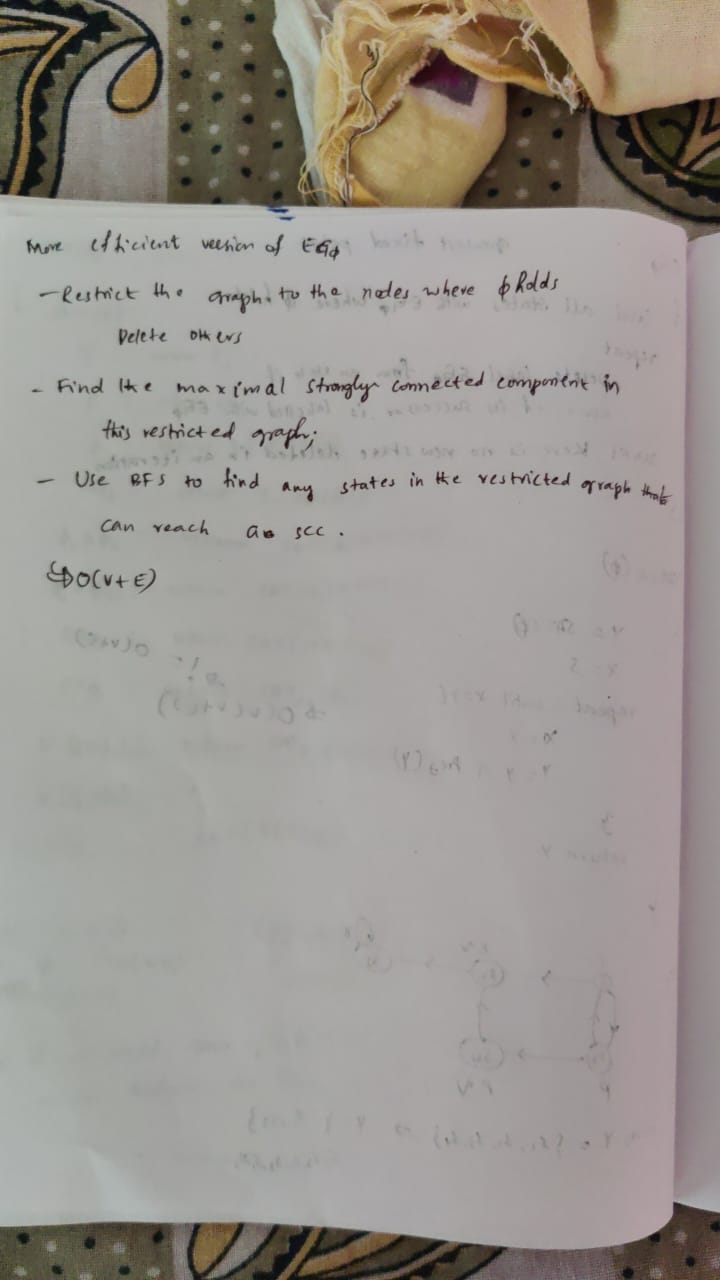 More efficient version of EGϕ
- Restrict the graph to the nodes where ϕ holds
Delete others
- Find the maximal strongly connected component in
this restricted graph;
- Use BFS to find any states in the restricted graph that
can reach an scc.
↳ O(V+E)